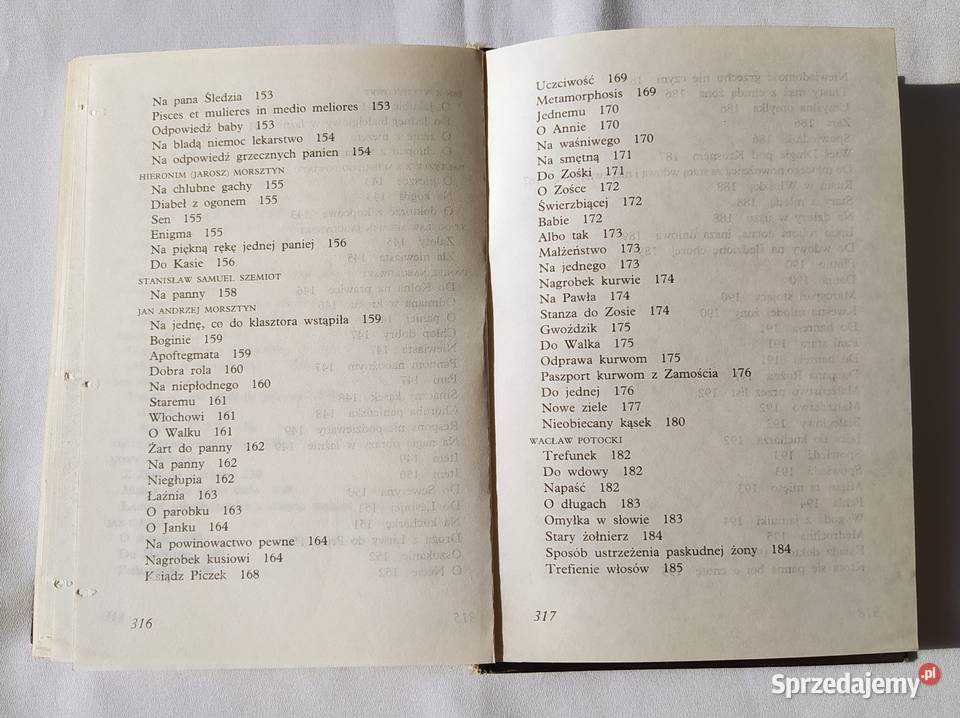 Na pana Śledzia 153
Pisces et mulieres in medio meliores 153
Odpowiedź baby 153
Na bladą niemoc lekarstwo 154
Na odpowiedź grzecznych panien 154
HIERONIM (JAROSZ) MORSZTYN
Na chlubne gachy 155
Diabeł z ogonem 155
Sen 155
Enigma 155
Na piękną rękę jednej paniej 156
Do Kasie 156
STANISŁAW SAMUEL SZEMIOT
Na panny 158
JAN ANDRZEJ MORSZTYN
Na jednę, co do klasztora wstąpiła 159
Boginie 159
Apoftegmata 159
Dobra rola 160
Na niepłodnego 160
Staremu 161
Włochowi 161
O Walku 161
Żart do panny 162
Na panny 162
Niegłupia 162
Łaźnia 163
O parobku 163
O Janku 164
Na powinowactwo pewne 164
Nagrobek kusiowi 164
Ksiądz Piczek 168
316
Uczciwość 169
Metamorphosis 169
Jednemu 170
O Annie 170
Na waśniwego 170
Na smętną 171
Do Zośki 171
O Zośce 172
Świerzbiącej 172
Babie 172
Albo tak 173
Małżeństwo 173
Na jednego 173
Nagrobek kurwie 174
Na Pawła 174
Stanza do Zosie 174
Gwoździk 175
Do Walka 175
Odprawa kurwom 175
Paszport kurwom z Zamościa 176
Do jednej 176
Nowe ziele 177
Nieobiecany kąsek 180
WACŁAW POTOCKI
Trefunek 182
Do wdowy 182
Napaść 182
O długach 183
Omyłka w słowie 183
Stary żołnierz 184
Sposób ustrzeżenia paskudnej żony 184
Trefienie włosów 185
317
Sprzedajemy.pl